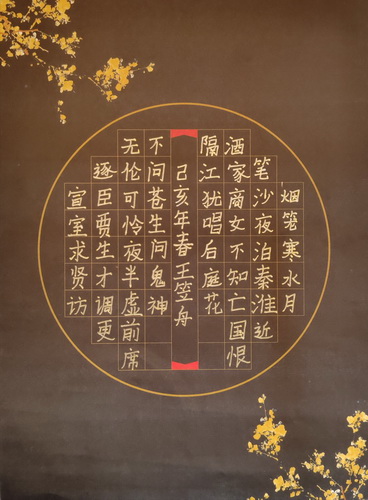 烟笼寒水月
笼沙夜泊秦淮近
酒家商女不知亡国恨
隔江犹唱后庭花
宣室求贤访
逐臣贾生才调更
无伦可怜夜半虚前席
不问苍生问鬼神
己亥年春王笠舟